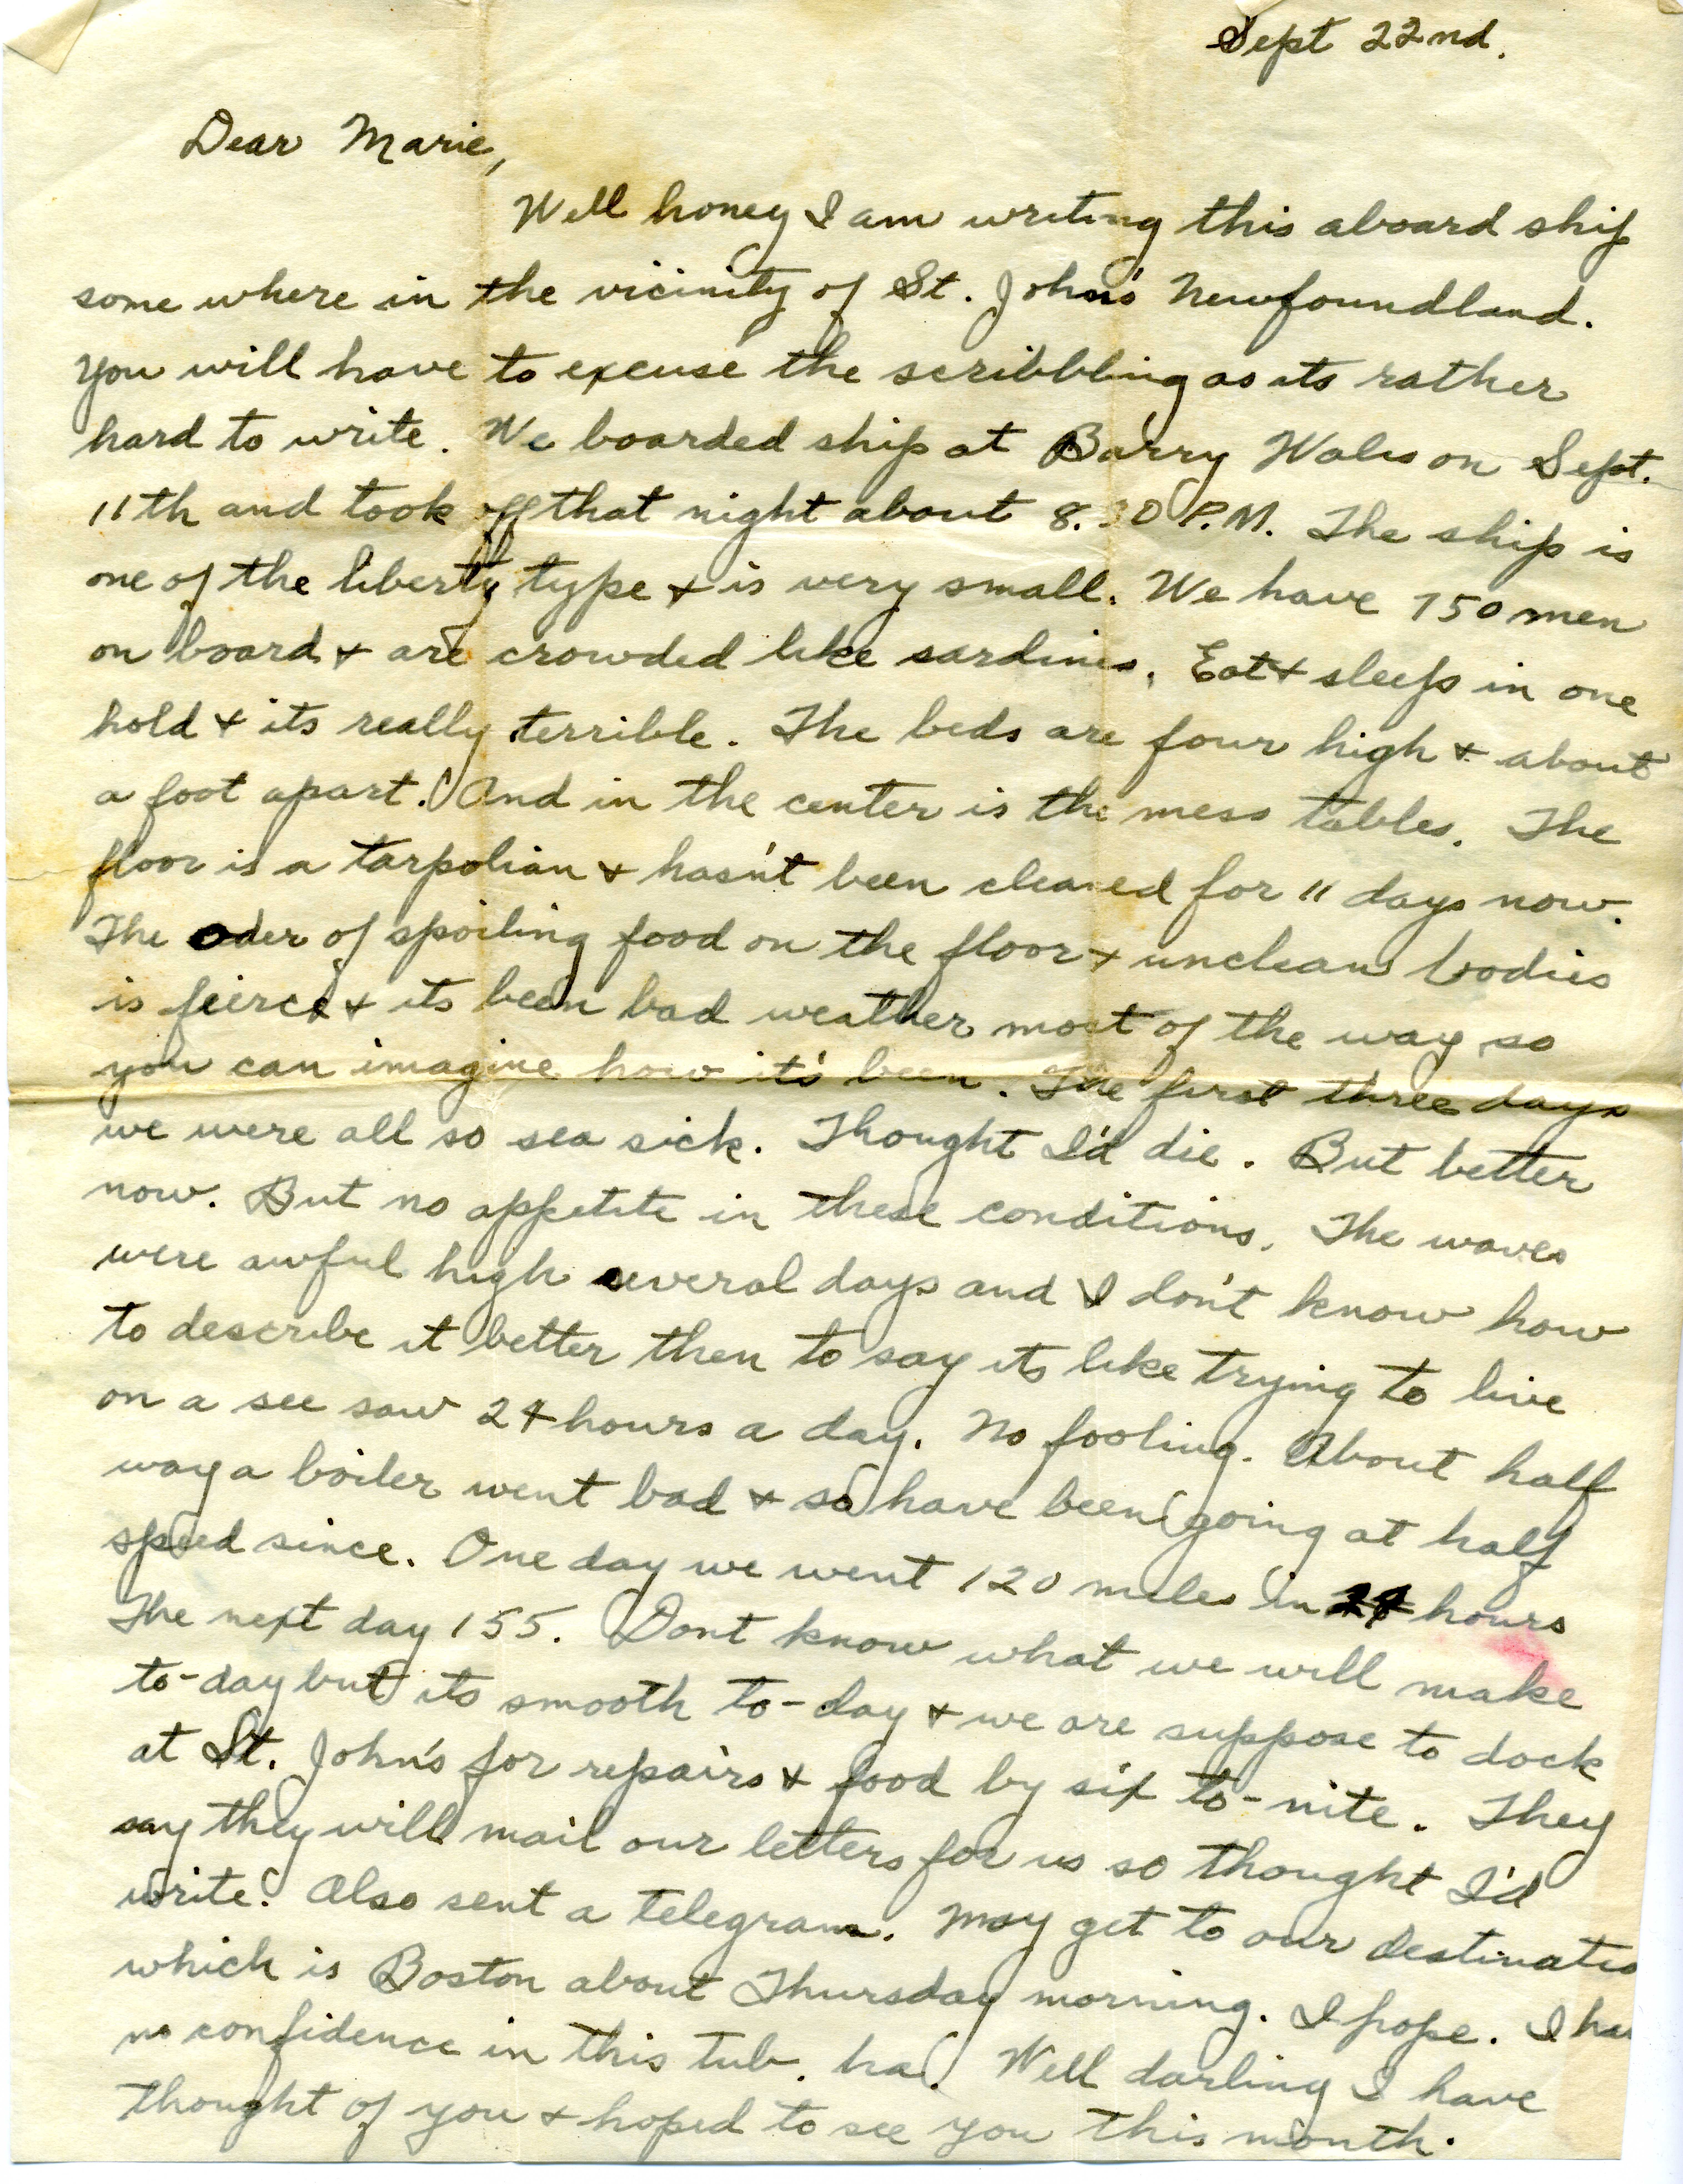 Sept 22nd.
Dear Marie,
Well honey I am writing this aboard ship
some where in the vicinity of St. John's Newfoundland.
You will have to excuse the scribbling as its rather
hard to write. We boarded ship at Barry Wales on Sept.
11th and took off that night about 8.30 P.M. The ship is
one of the liberty type & is very small. We have 750 men
on board & are crowded like sardines. Eat & sleep in one
hold & its really terrible. The beds are four high & about
a foot apart. And in the center is the mess tables. The
floor is a tarpolian & hasn't been cleaned for 11 days now.
The oder of spoiling food on the floor & unclean bodies
is feirce & its been bad weather most of the way so
you can imagine how it's been. The first three days
we were all so sea sick. Thought I'd die. But better
now. But no appetite in these conditions. The waves
were awful high several days and I don't know how
to describe it better then to say its like trying to live
on a see saw 24 hours a day. No fooling. About half
way a boiler went bad & so have been going at half
speed since. One day we went 120 miles in 24 hours
The next day 155. Dont know what we will make
to-day but its smooth to-day & we are suppose to dock
at St. John's for repairs & food by six to-nite. They
say they will mail our letters for us so thought I'd
write. Also sent a telegram. May get to our destinatio
which is Boston about Thursday morning. I hope. I ha
no confidence in this tub. ha. Well darling I have
thought of you & hoped to see you this month.